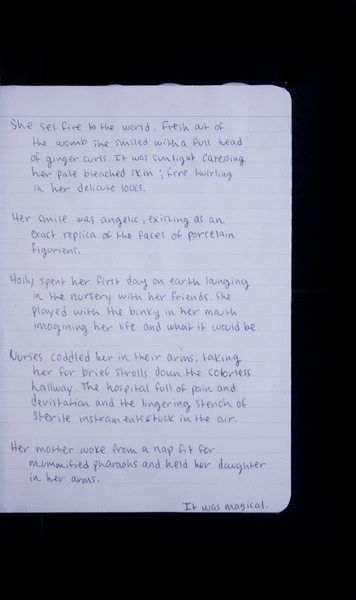 She set fire to the world. Fresh out of
the womb she smiled with a full head
of ginger curls. It was sunlight caressing
her pale bleached skin; fire twirling
in her delicate locks.
Her smile was angelic, existing as an
exact replica of the faces of porcelain
figuriens.
Holly spent her first day on earth lounging
in the nursery with her friends. She
played with the binky in her mouth
imagining her life and what it would be.
Nurses coddled her in their arms, taking
her for brief strolls down the colorless
hallway. The hospital full of pain and
devistation and the lingering stench of
sterile instraments stuck in the air.
Her mother woke from a nap fit for
mummified pharaohs and held her daughter
in her arms.
It was magical.